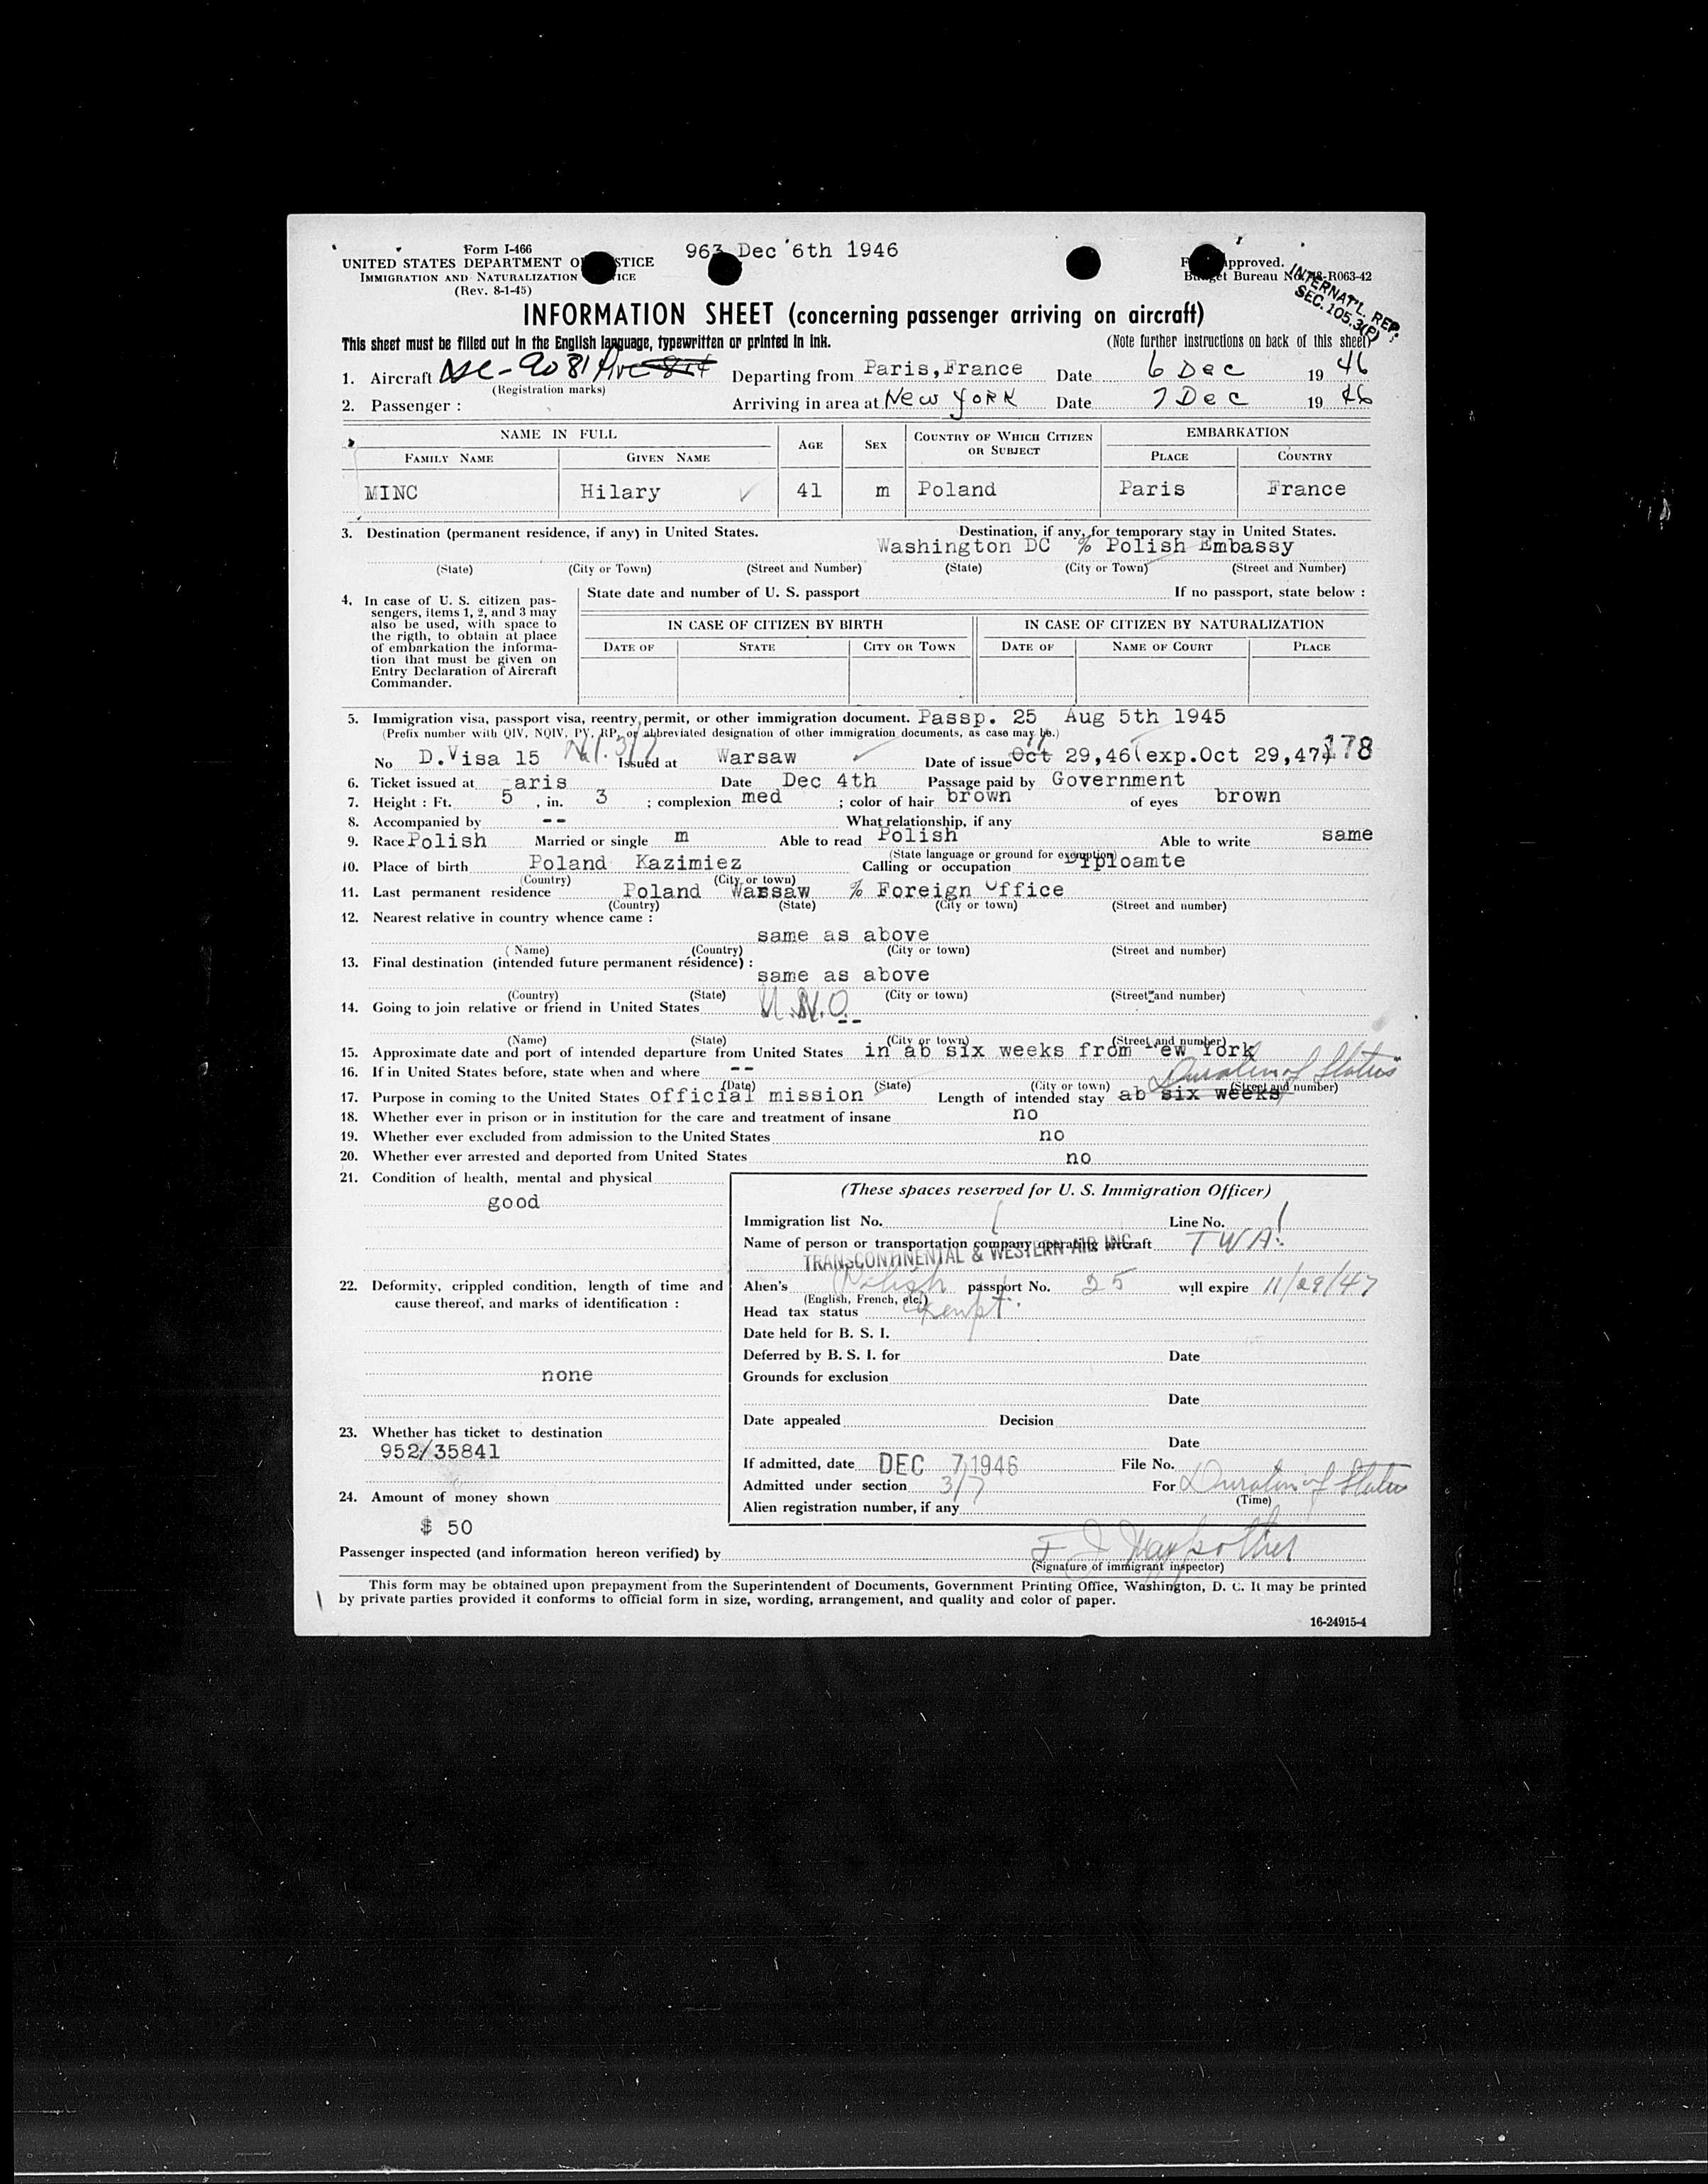 Form I-466
963 Dec 6th 1946
UNITED STATES DEPARTMENT O STICE
IMMIGRATION AND NATURALIZATION ICE
(Rev. 8-1-45)
F approved.
Bu get Bureau No. 48-R063-42
INTERNAT'L. REP.
SEC. 105.3(P)
INFORMATION SHEET (concerning passenger arriving on aircraft)
This sheet must be filled out in the English language, typewritten or printed in ink.
(Note further instructions on back of this sheet)
1. Aircraft Departing from Paris, France Date 6 Dec 19 46
(Registration marks)
2. Passenger : Arriving in area at New YORK Date 7 Dec 19 46
NAME IN FULL AGE SEX COUNTRY OF WHICH CITIZEN OR SUBJECT EMBARKATION
FAMILY NAME GIVEN NAME PLACE COUNTRY
MINC Hilary 41 m Poland Paris France
3. Destination (permanent residence, if any) in United States. Destination, if any, for temporary stay in United States.
Washington DC % Polish Embassy
(State) (City or Town) (Street and Number) (State) (City or Town) (Street and Number)
4. In case of U. S. citizen pas-
sengers, items 1, 2, and 3 may
also be used, with space to
the rigth, to obtain at place
of embarkation the informa-
tion that must be given on
Entry Declaration of Aircraft
Commander.
State date and number of U. S. passport If no passport, state below :
IN CASE OF CITIZEN BY BIRTH IN CASE OF CITIZEN BY NATURALIZATION
DATE OF STATE CITY OR TOWN DATE OF NAME OF COURT PLACE
5. Immigration visa, passport visa, reentry permit, or other immigration document. Passp. 25 Aug 5th 1945
(Prefix number with QIV, NQIV, PV, RP, or abbreviated designation of other immigration documents, as case may be.)
No D.Visa 15 3/7 Issued at Warsaw Date of issue Oct 29,46(exp.Oct 29,47) 178
6. Ticket issued at aris Date Dec 4th Passage paid by Government
7. Height : Ft. 5 , in. 3 ; complexion med ; color of hair brown of eyes brown
8. Accompanied by -- What relationship, if any
9. Race Polish Married or single m Able to read Polish Able to write same
(State language or ground for exemption)
10. Place of birth Poland Kazimiez Calling or occupation Diploamte
(Country) (City or town)
11. Last permanent residence Poland Warsaw % Foreign Office
(Country) (State) (City or town) (Street and number)
12. Nearest relative in country whence came :
same as above
(Name) (Country) (City or town) (Street and number)
13. Final destination (intended future permanent résidence) :
same as above
(Country) (State) (City or town) (Street and number)
14. Going to join relative or friend in United States U.N.O. --
(Name) (State) (City or town) (Street and number)
15. Approximate date and port of intended departure from United States in ab six weeks from New York
16. If in United States before, state when and where --
(Date) (State) (City or town) (Street and number)
Duration of Status
17. Purpose in coming to the United States official mission Length of intended stay ab six weeks
18. Whether ever in prison or in institution for the care and treatment of insane no
19. Whether ever excluded from admission to the United States no
20. Whether ever arrested and deported from United States no
21. Condition of health, mental and physical
good
22. Deformity, crippled condition, length of time and
cause thereof, and marks of identification :
none
23. Whether has ticket to destination
952/35841
24. Amount of money shown
$ 50
(These spaces reserved for U. S. Immigration Officer)
Immigration list No. 1 Line No. 1
Name of person or transportation company operating aircraft TWA.
TRANSCONTINENTAL & WESTERN AIR INC.
Alien's Polish passport No. 25 will expire 11/29/47
(English, French, etc.)
Head tax status Exempt.
Date held for B. S. I.
Deferred by B. S. I. for Date
Grounds for exclusion
Date
Date appealed Decision
Date
If admitted, date DEC 7 1946 File No.
Admitted under section 3/7 For Duration of Status
(Time)
Alien registration number, if any
Passenger inspected (and information hereon verified) by
(Signature of immigrant inspector)
This form may be obtained upon prepayment from the Superintendent of Documents, Government Printing Office, Washington, D. C. It may be printed
by private parties provided it conforms to official form in size, wording, arrangement, and quality and color of paper.
16-24915-4